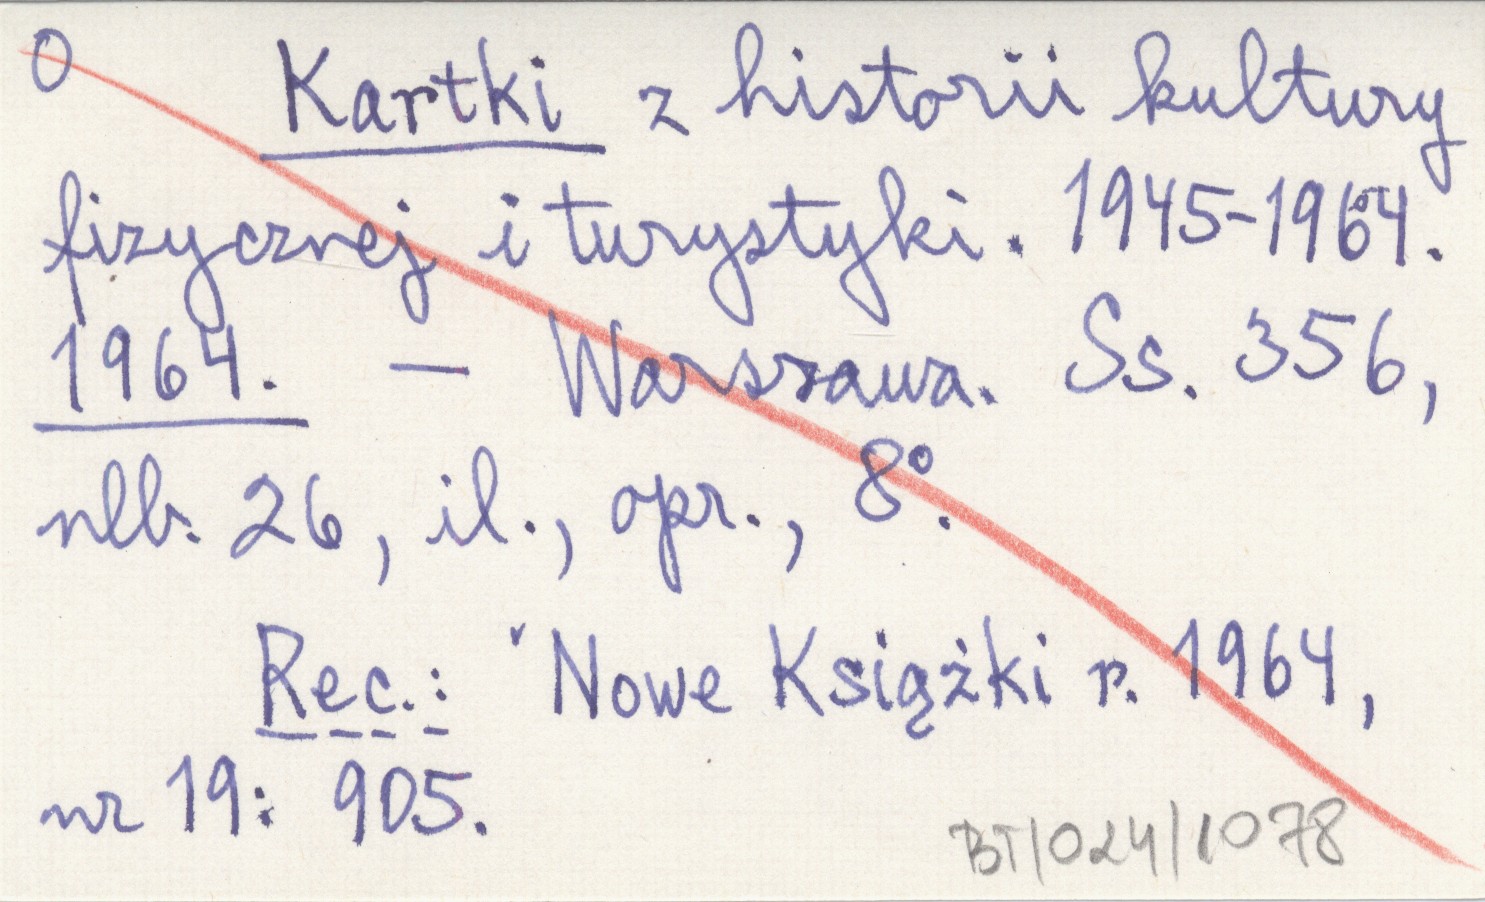 O Kartki z historii kultury
fizycznej i turystyki. 1945-1964.
1964. — Warszawa. Ss. 356,
nlb. 26, il., opr., 8°.
Rec.: Nowe Książki r. 1964,
nr 19: 905.
BT/024/1078